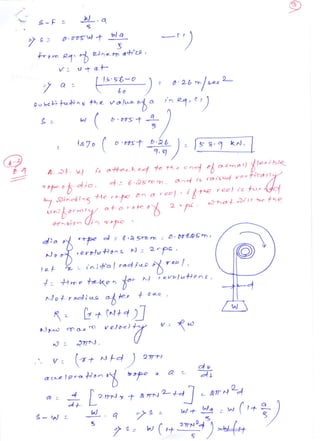 S-F = W/g . a
⇒ S = 0.005W + Wa/g —(1)
from eq. of kinematics.
v = u + at
⇒ a = (15.56-0)/60 = 0.26 m/sec2
substituting the value of a in eq. (1)
S = W (0.005 + a/g)
= 1070 (0.005 + 0.26/9.81) = 58.9 kN.
A wt. W is attached to the end of a small flexible
rope of dia. d = 6.25mm. and is raised vertically
by winding the rope on a reel. If the reel is turned
uniformly at a rate of 2 rps. what will be the
tension in rope.
dia of rope d = 6.25mm = 0.00625m.
No of revolutions N = 2 rps.
let r = initial radius of reel.
t = time taken for N revolutions.
Net radius after t sec.
R = [r + (Nt)d]
Now mean velocity v = Rω
ω = 2πN.
∴ v = (r + Ntd) 2πN
acceleration of rope a = dv/dt
a = d/dt [2πNr + 2πN2td] = 2πN2d
S - W = W/g . a ⇒ S = W + Wa/g = W (1 + a/g)
⇒ S = W (1 + 2πN2d/g)
d
W